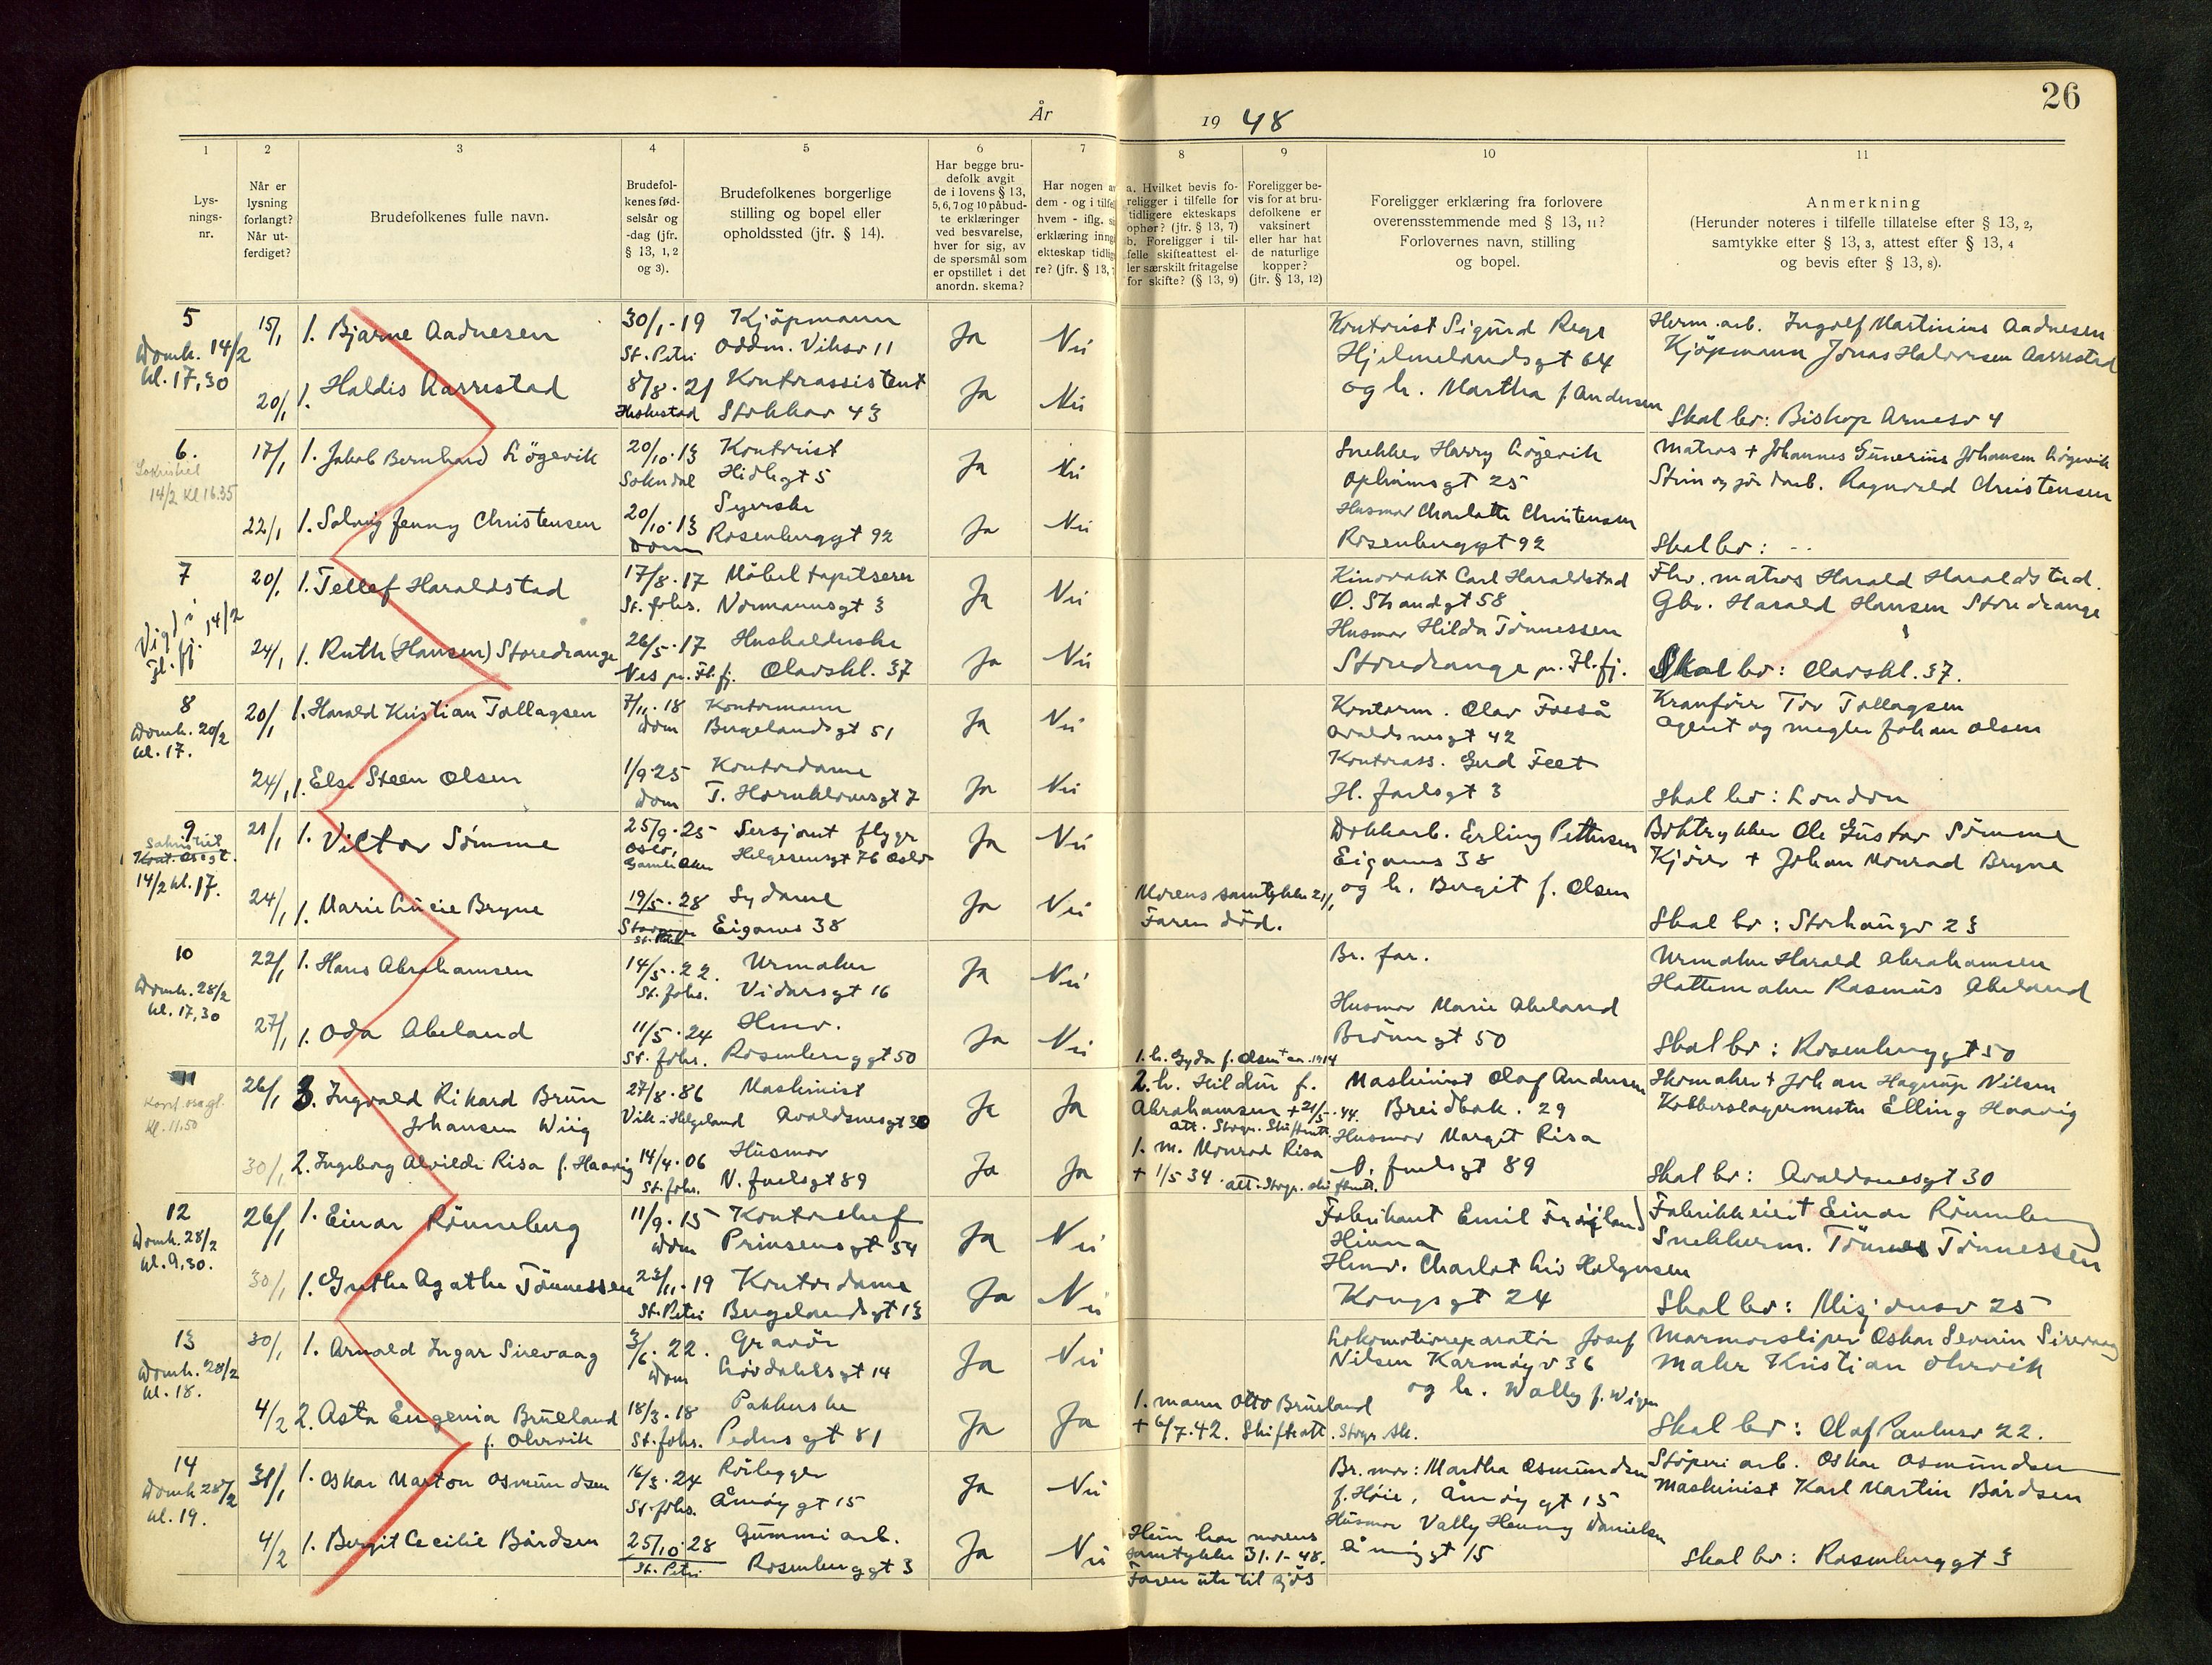 26
År 1948
1
2
3
4
5
6
7
8
9
10
11
Lys-
nings-
nr.
Når er
lysning
forlangt?
Når ut-
ferdiget?
Brudefolkenes fulle navn.
Brudefol-
kenes fød-
selsår og
-dag (jfr.
§ 13, 1, 2
og 3).
Brudefolkenes borgerlige
stilling og bopel eller
opholdssted (jfr. § 14).
Har begge bru-
defolk avgit
de i lovens § 13,
5, 6, 7 og 10 påbud-
te erklæringer
ved besvarelse,
hver for sig, av
de spørsmål som
er opstillet i det
anordn. skema?
Har nogen a
dem - og i tilfel
hvem - iflg. si
erklæring inng
ekteskap tidlig
re? (jfr. § 13, 7
a. Hvilket bevis fo-
religger i tilfelle for
tidligere ekteskaps
ophør? (jfr. § 13, 7)
b. Foreligger i til-
felle skifteattest el-
ler særskilt fritagelse
for skifte? (§ 13, 9)
Foreligger be-
vis for at bru-
defolkene er
vaksinert
eller har hat
de naturlige
kopper?
(jfr. § 13, 12)
Foreligger erklæring fra forlovere
overensstemmende med § 13, 11?
Forlovernes navn, stilling
og bopel.
Anmerkning
(Herunder noteres i tilfelle tillatelse efter § 13, 2,
samtykke efter § 13, 3, attest efter § 13, 4
og bevis efter § 13, 8).
5
Domk. 14/2
kl. 17,30
15/1 1. Bjarne Aadnesen 30/1-19 Kjöpmann Ja Nei
St. Petri Oddm. Viksv 11
Kontorist Sigurd Rege
Hjelmelandsgt 64
Herm. arb. Ingolf Martinius Aadnesen
Kjöpmann Jonas Halvorsen Aarrestad
20/1 1. Haldis Aarrestad 8/8-21 Kontorassistent Ja Nei
Hetland Stokkav 43
og h. Martha f Andersen
Skal bo: Bishop Arnesv 4
6.
14/2 Kl 16.35
17/1 1. Jakob Bernhard Lögevik 20/10-13 Kontorist Ja Nei
Sokndal Hidlegt 5
Snekker Harry Lögevik
Opheimsgt 25
Matros + Johannes Gunerius Johansen Lögevik
Sten og jordarb. Ragnvald Christensen
22/1 1. Solveig Jenny Christensen 20/10-13 Syerske Ja Nei
Dom Rosenberggt 92
Husmor Charlotte Christensen
Rosenberggt 92
Skal bo: - -
7
Vigd i
Fl. fj. 14/2
20/1 1. Tellef Haraldstad 17/8-17 Möbeltapetserer Ja Nei
St. Johs. Normannsgt 3
Kinovakt Carl Haraldstad
Ö. Strandgt 58
Fhv. matros Harald Haraldstad.
Gbr. Harald Hansen Storedrange
24/1 1. Ruth (Hansen) Storedrange 26/5-17 Husholderske Ja Nei
Nes pr. Fl. fj. Olavskl. 37
Husmor Hilda Tönnessen
Storedrange pr. Fl. fj.
Skal bo: Olavskl. 37.
8
Domk. 20/2
kl. 17.
20/1 1. Harald Kristian Tollagsen 7/11-18 Kontormann Ja Nei
Dom Bergelandsgt 51
Kontorm. Olav Fosså
Avaldsnesgt 42
Kranförer Tov Tollagsen
Agent og megler Johan Olsen
24/1 1. Else Steen Olsen 1/9-25 Kontordame Ja Nei
Dom T. Hornklovesgt 7
Kontorass. Gerd Feet
H. Jarlsgt 3
Skal bo: London
9
14/2 kl. 17.
21/1 1. Victor Sömme 25/9-25 Sersjant flyge Ja Nei
Oslo, Gamle Aker Helgesensgt 76 Oslo
Dokkarb. Erling Pettersen
Eiganes 38
Boktrykker Ole Gustav Sömme
Kjörer + Johan Monrad Bryne
24/1 1. Marie Lucie Bryne 19/5-28 Sydame Ja Nei
St. Petri Eiganes 38
Morens samtykke 21/1
Faren död.
og h. Bergit f. Olsen
Skal bo: Storhaugv 23
10
Domk. 28/2
kl. 17,30
22/1 1. Hans Abrahamsen 14/5-22. Urmaker Ja Nei
St. Johs. Vidarsgt 16
Br. far.
Urmaker Harald Abrahamsen
Hattemaker Rasmus Abeland
27/1 1. Oda Abeland 11/5-24 Hmv. Ja Nei
St. Johs. Rosenberggt 50
Husmor Marie Abeland
Bröungt 50
Skal bo: Rosenberggt 50
11
kl. 11.50
26/1 3. Ingvald Rikard Brun 27/8-86 Maskinist Ja Ja
Johansen Wiig Vik i Helgeland Avaldsnesgt 30
1. h. Gyda f. Olsen + 1914
2. h. Hildur f.
Abrahamsen + 21/5-44.
att. Stvgr. Skifterett.
Maskinist Olaf Andersen
Breidbak. 29
Skomaker + Johan Hagrup Nilsen
Kobberslagermester Elling Haavig
30/1 2. Ingeborg Alvilde Risa f. Haavig 14/4-06 Husmor Ja Ja
St. Johs. N. Juelsgt 89
1. m. Monrad Risa
+ 1/5 34. att. Stvgr. skifterett.
Husmor Margit Risa
N. Juelsgt 89
Skal bo: Avaldsnesgt 30
12
Domk. 28/2
kl. 9,30.
26/1 1. Einar Rönneberg 11/9-15 Kontorchef Ja Nei
Dom Prinsensgt 54
Fabrikant Emil Fröyland
Hinna
Fabrikkeiert Einar Rönneberg
Snekkerm. Tönnes Tönnessen
30/1 1. Grethe Agathe Tönnessen 23/11-19 Kontordame Ja Nei
St. Petri Bergelandsgt 13
Hmv. Charlot Liv Helgesen
Kongsgt 24
Skal bo: Misjonsv 25
13
Domk. 28/2
kl. 18.
30/1 1. Arnold Ingar Sirevaag 3/6-22. Gravör Ja Nei
Dom Lövdahlsgt 14
Lokomotivreparatör Josef
Nilsen Karmöyv 36
Marmorsliper Oskar Severin Sirevaag
Maler Kristian Ohrvik
4/2 2. Asta Eugenia Brueland 18/3-18 Pakkerske Ja Ja
f. Ohrvik St. Johs. Pedersgt 81
1. mann Otto Brueland
+ 6/7-42. Skifteatt. Stvgr. Sk.
og h. Wally f. Wigen
Skal bo: Olaf Paulusv 22.
14
Domk 28/2
kl. 19.
31/1 1. Oskar Marton Osmundsen 16/3-24 Rörlegger Ja Nei
St. Johs. Åmöygt 15
Br. mor: Martha Osmundsen
f. Höie, Åmöygt 15
Stöperiarb. Oskar Osmundsen
Maskinist Karl Martin Bårdsen
4/2 1. Bergit Cecilie Bårdsen 25/10-28 Gummiarb. Ja Nei
St. Petri Rosenberggt 3
Hun har morens
samtykke 31.1-48.
Faren ute til sjös
Husmor Vally Henny Danielsen
Åmöygt 15
Skal bo: Rosenberggt 3